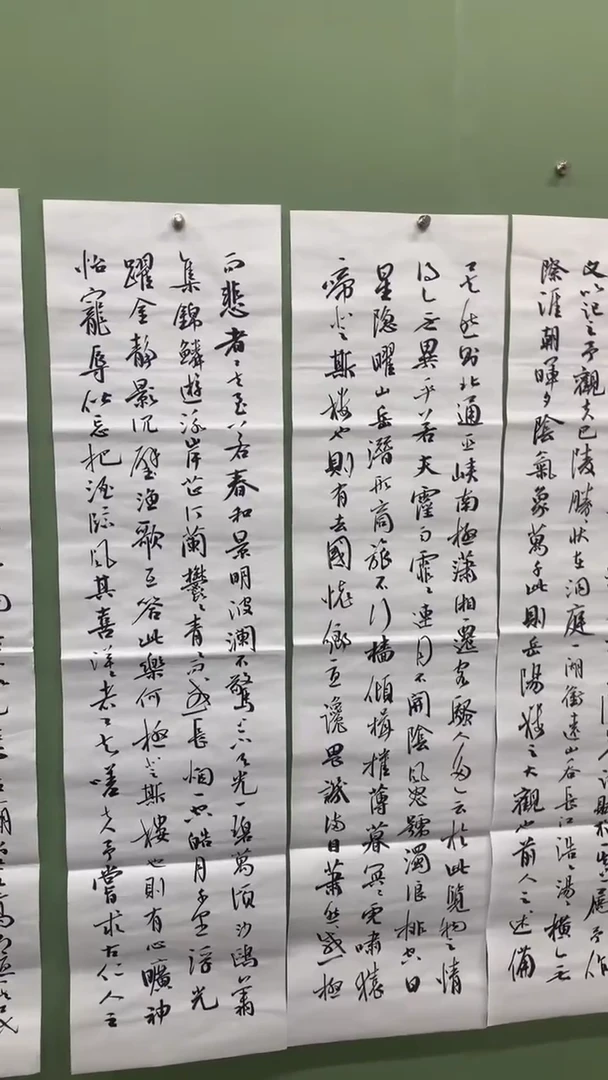 屬予作
文以記之予觀夫巴陵勝狀在洞庭一湖銜遠山吞長江浩浩湯湯橫無
際涯朝暉夕陰氣象萬千此則岳陽樓之大觀也前人之述備
矣然則北通巫峽南極瀟湘遷客騷人多會於此覽物之情
得無異乎若夫霪雨霏霏連月不開陰風怒號濁浪排空日
星隱曜山岳潛形商旅不行檣傾楫摧薄暮冥冥虎嘯猿
啼登斯樓也則有去國懷鄉憂讒畏譏滿目蕭然感極
而悲者矣至若春和景明波瀾不驚上下天光一碧萬頃沙鷗翔
集錦鱗遊泳岸芷汀蘭鬱鬱青青而或長煙一空皓月千里浮光
躍金靜影沉璧漁歌互答此樂何極登斯樓也則有心曠神
怡寵辱偕忘把酒臨風其喜洋洋者矣嗟夫予嘗求古仁人之